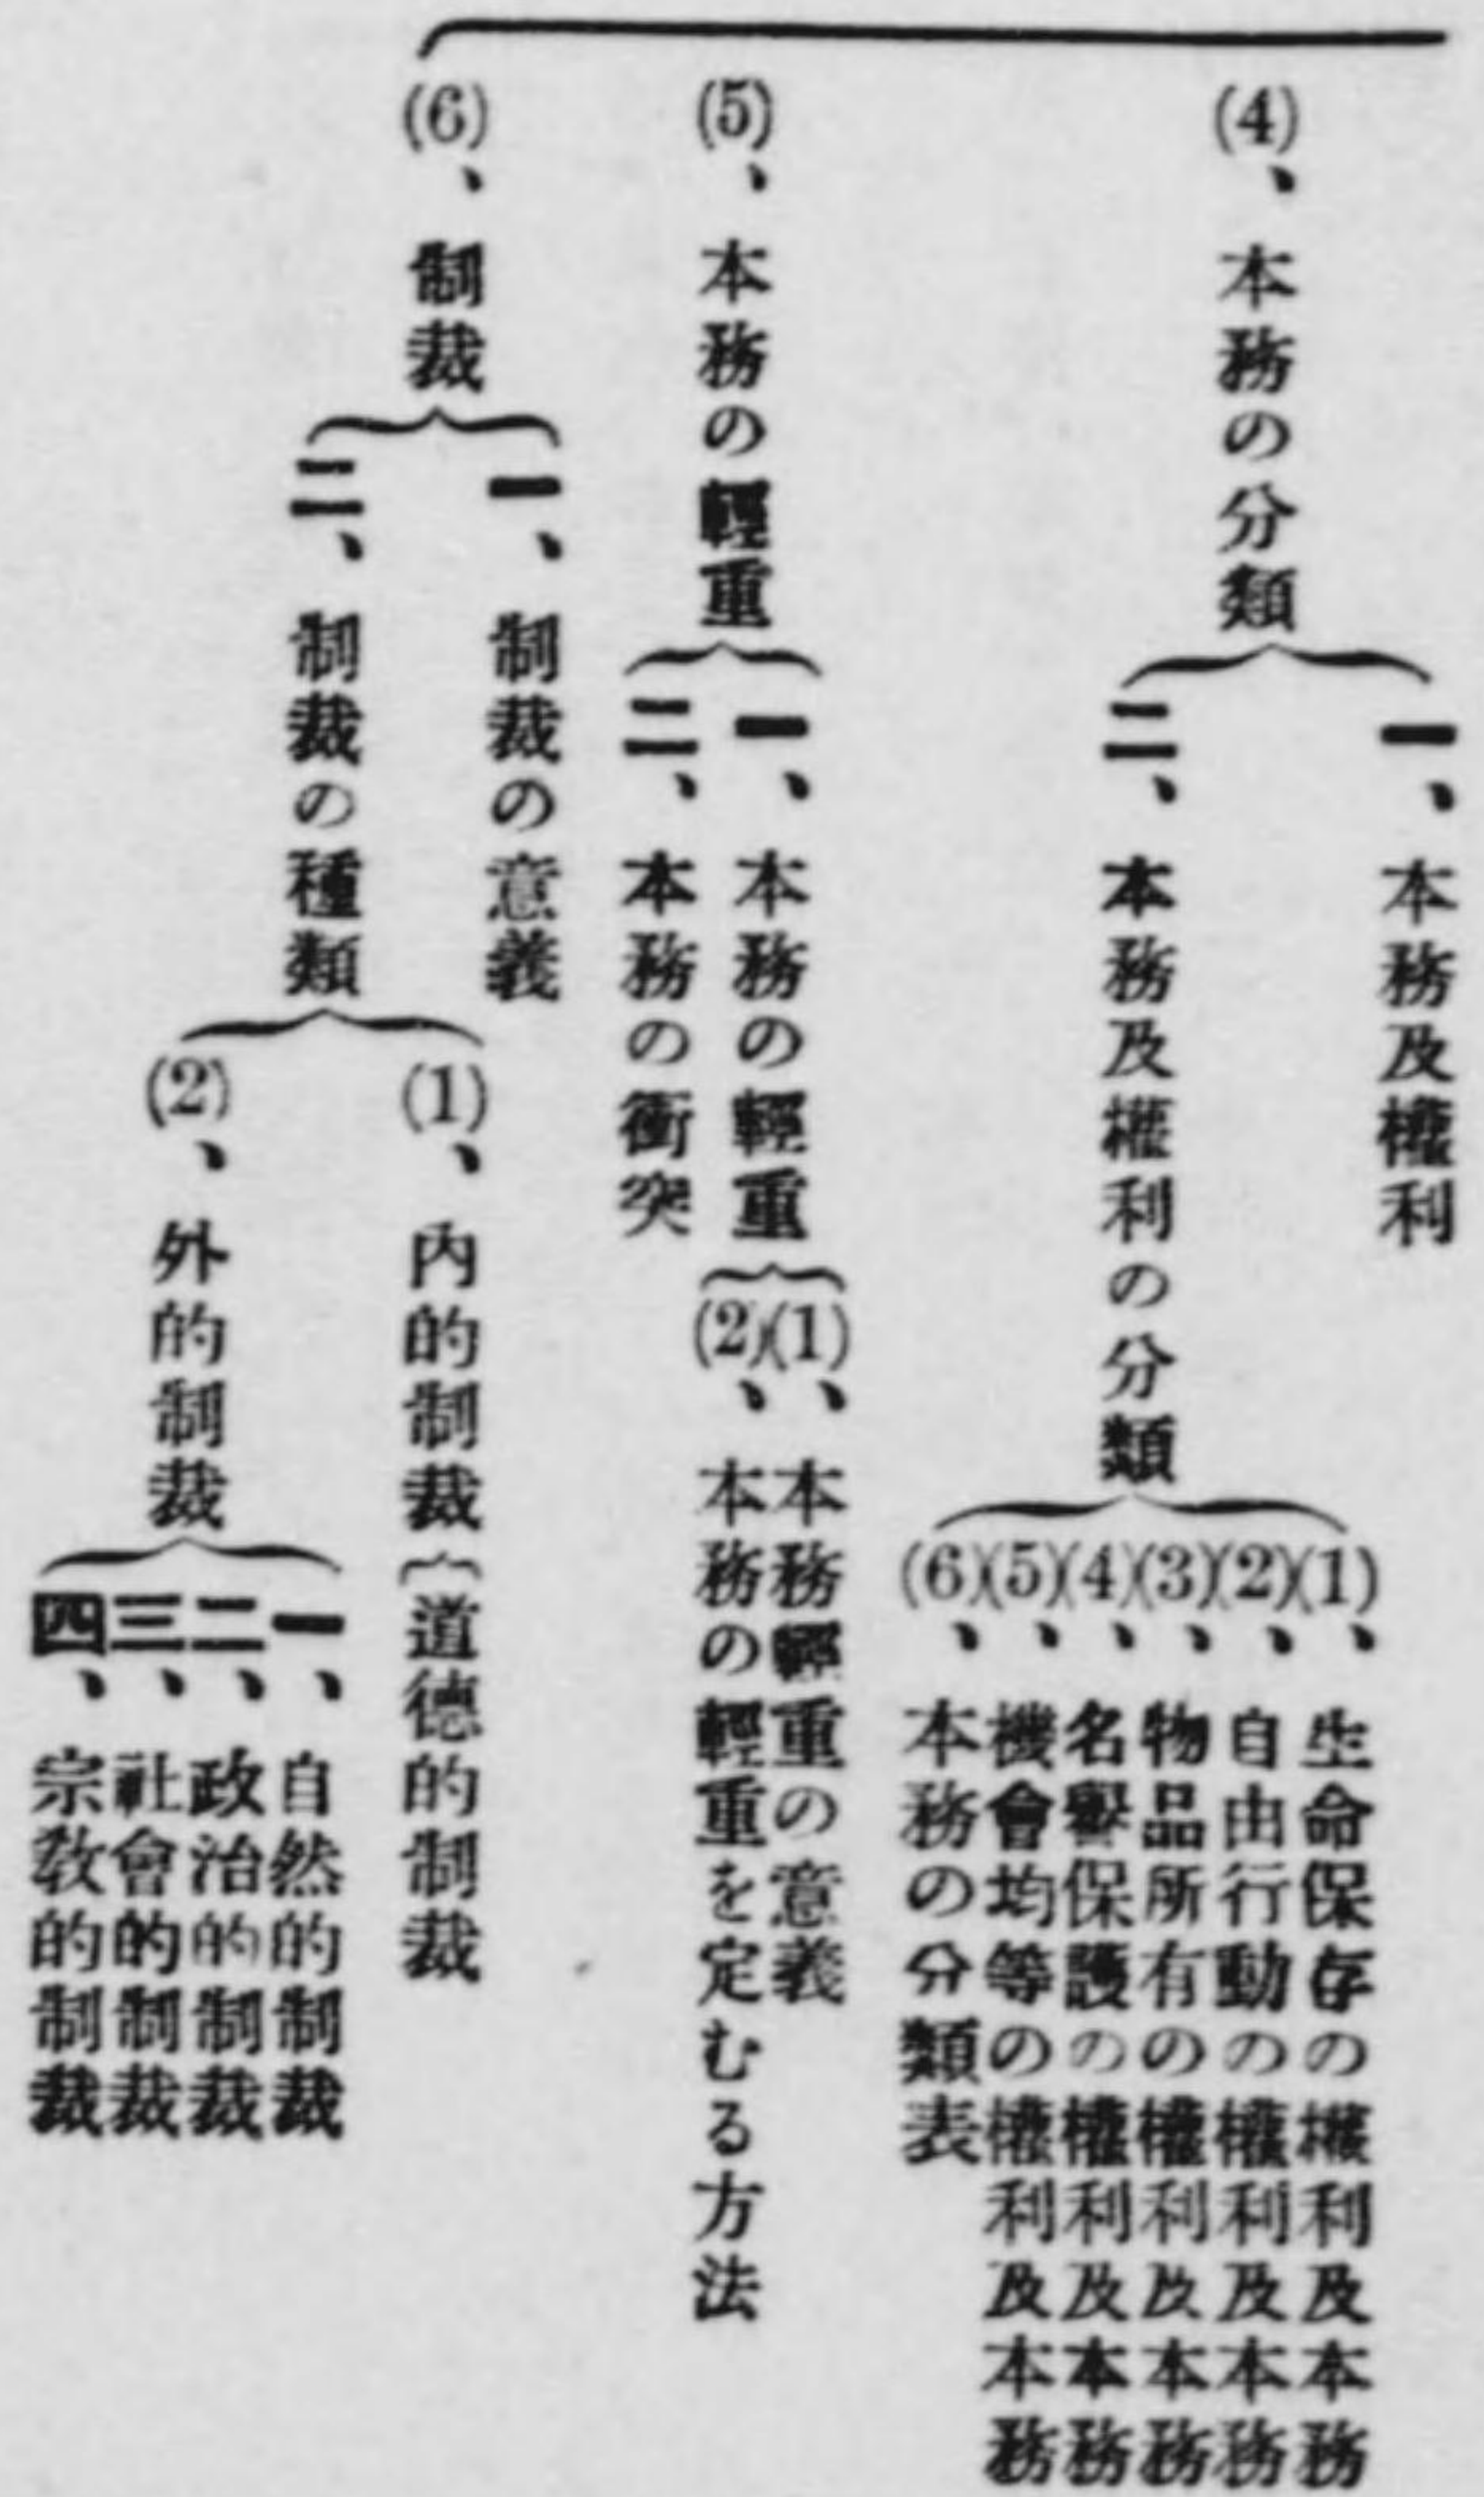 (4)、本務の分類
一、本務及權利
二、本務及權利の分類
(1)、生命保存の權利及本務
(2)、自由行動の權利及本務
(3)、物品所有の權利及本務
(4)、名譽保護の權利及本務
(5)、機會均等の權利及本務
(6)、本務の分類表
(5)、本務の輕重
一、本務の輕重
(1)、本務輕重の意義
(2)、本務の輕重を定むる方法
二、本務の衝突
(6)、制裁
一、制裁の意義
二、制裁の種類
(1)、內的制裁
道德的制裁
(2)、外的制裁
一、自然的制裁
二、政治的制裁
三、社會的制裁
四、宗敎的制裁